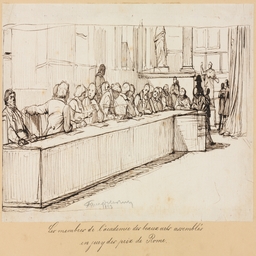 Les membres de l'académie des beaux arts assemblés
en jury des prix de Rome.